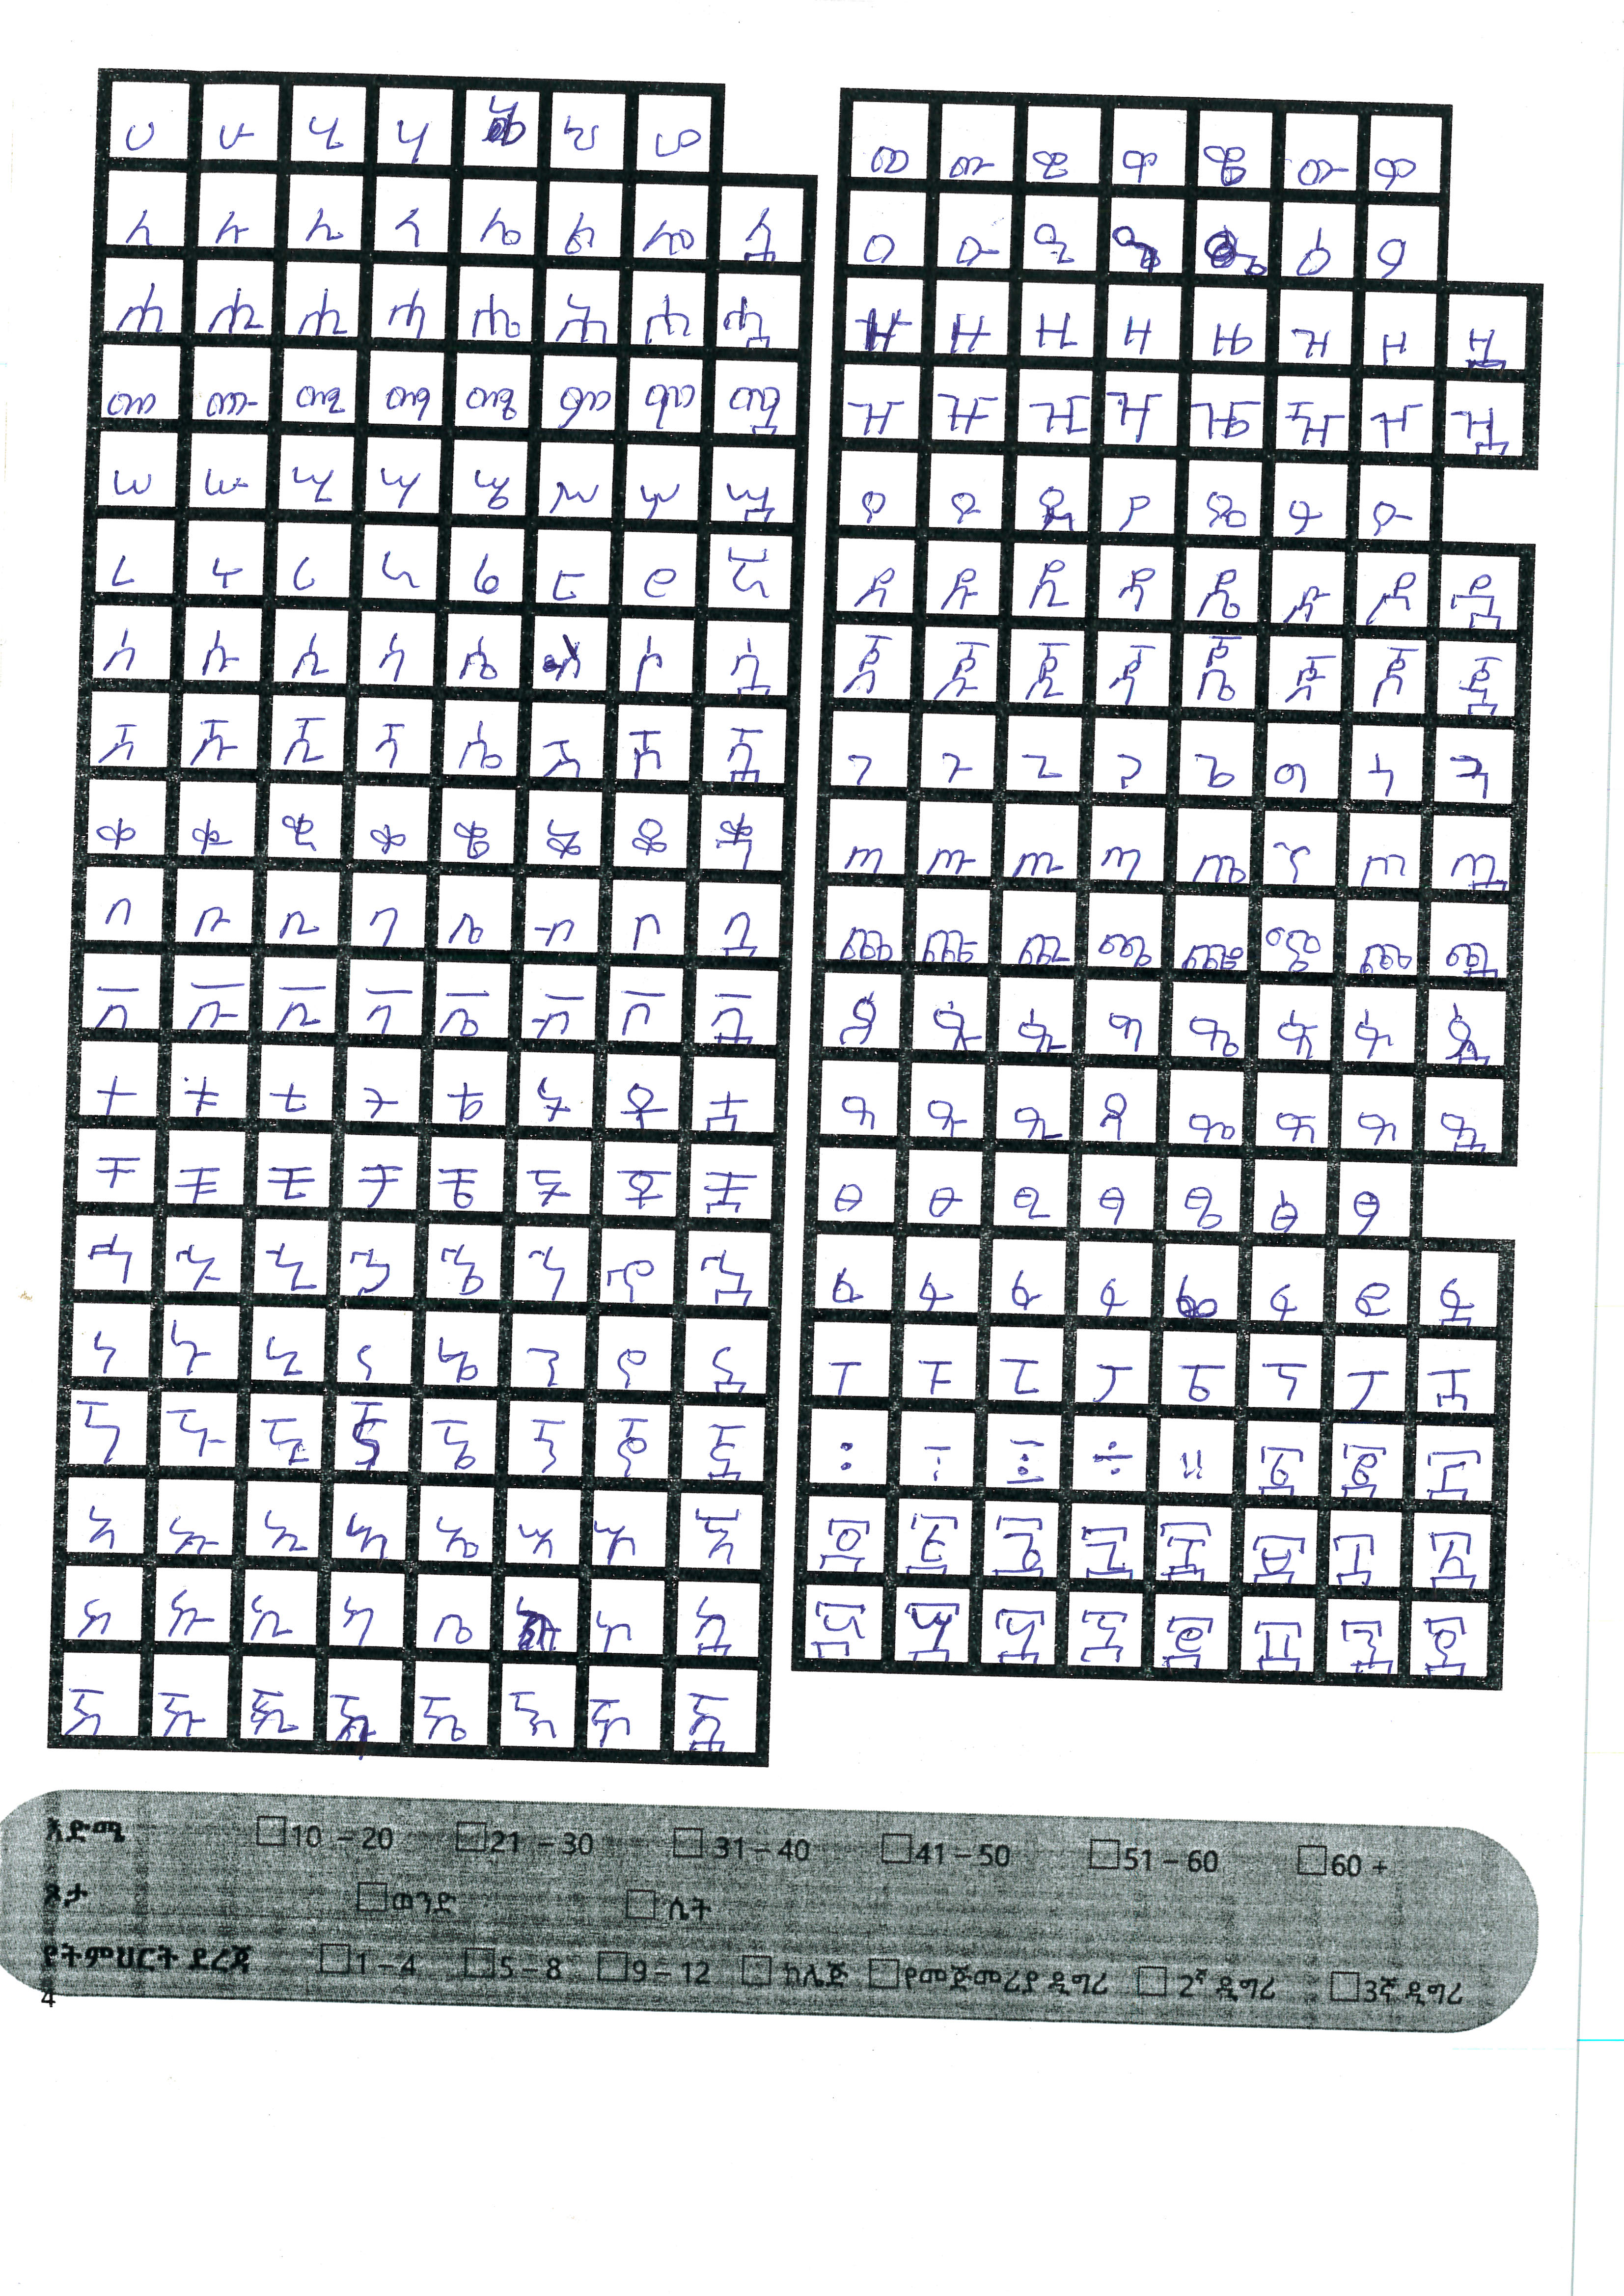 ሀ ሁ ሂ ሃ ሄ ህ ሆ
ለ ሉ ሊ ላ ሌ ል ሎ ሏ
ሐ ሑ ሒ ሓ ሔ ሕ ሖ ሗ
መ ሙ ሚ ማ ሜ ም ሞ ሟ
ሠ ሡ ሢ ሣ ሤ ሥ ሦ ሧ
ረ ሩ ሪ ራ ሬ ር ሮ ሯ
ሰ ሱ ሲ ሳ ሴ ስ ሶ ሷ
ሸ ሹ ሺ ሻ ሼ ሽ ሾ ሿ
ቀ ቁ ቂ ቃ ቄ ቅ ቆ ቋ
በ ቡ ቢ ባ ቤ ብ ቦ ቧ
ቨ ቩ ቪ ቫ ቬ ቭ ቮ ቯ
ተ ቱ ቲ ታ ቴ ት ቶ ቷ
ቸ ቹ ቺ ቻ ቼ ች ቾ ቿ
ኀ ኁ ኂ ኃ ኄ ኅ ኆ ኋ
ነ ኑ ኒ ና ኔ ን ኖ ኗ
ኘ ኙ ኚ ኛ ኜ ኝ ኞ ኟ
አ ኡ ኢ ኣ ኤ እ ኦ ኧ
ከ ኩ ኪ ካ ኬ ክ ኮ ኳ
ኸ ኹ ኺ ኻ ኼ ኽ ኾ ዃ
ወ ዉ ዊ ዋ ዌ ው ዎ
ዐ ዑ ዒ ዓ ዔ ዕ ዖ
ዘ ዙ ዚ ዛ ዜ ዝ ዞ ዟ
ዠ ዡ ዢ ዣ ዤ ዥ ዦ ዧ
የ ዩ ዪ ያ ዬ ይ ዮ
ደ ዱ ዲ ዳ ዴ ድ ዶ ዷ
ጀ ጁ ጂ ጃ ጄ ጅ ጆ ጇ
ገ ጉ ጊ ጋ ጌ ግ ጎ ጓ
ጠ ጡ ጢ ጣ ጤ ጥ ጦ ጧ
ጨ ጩ ጪ ጫ ጬ ጭ ጮ ጯ
ጰ ጱ ጲ ጳ ጴ ጵ ጶ ጷ
ጸ ጹ ጺ ጻ ጼ ጽ ጾ ጿ
ፀ ፁ ፂ ፃ ፄ ፅ ፆ
ፈ ፉ ፊ ፋ ፌ ፍ ፎ ፏ
ፐ ፑ ፒ ፓ ፔ ፕ ፖ ፗ
፡ ፣ ፤ ፥ ። ፩ ፪ ፫
፬ ፭ ፮ ፯ ፰ ፱ ፲ ፳
፴ ፵ ፶ ፷ ፸ ፹ ፺ ፻
እድሜ 10 – 20 21 – 30 31 – 40 41 – 50 51 – 60 60 +
ጾታ ወንድ ሴት
የትምህርት ደረጃ 1 – 4 5 – 8 9 – 12 ኮሌጅ የመጀመሪያ ዲግሪ 2ኛ ዲግሪ 3ኛ ዲግሪ
4